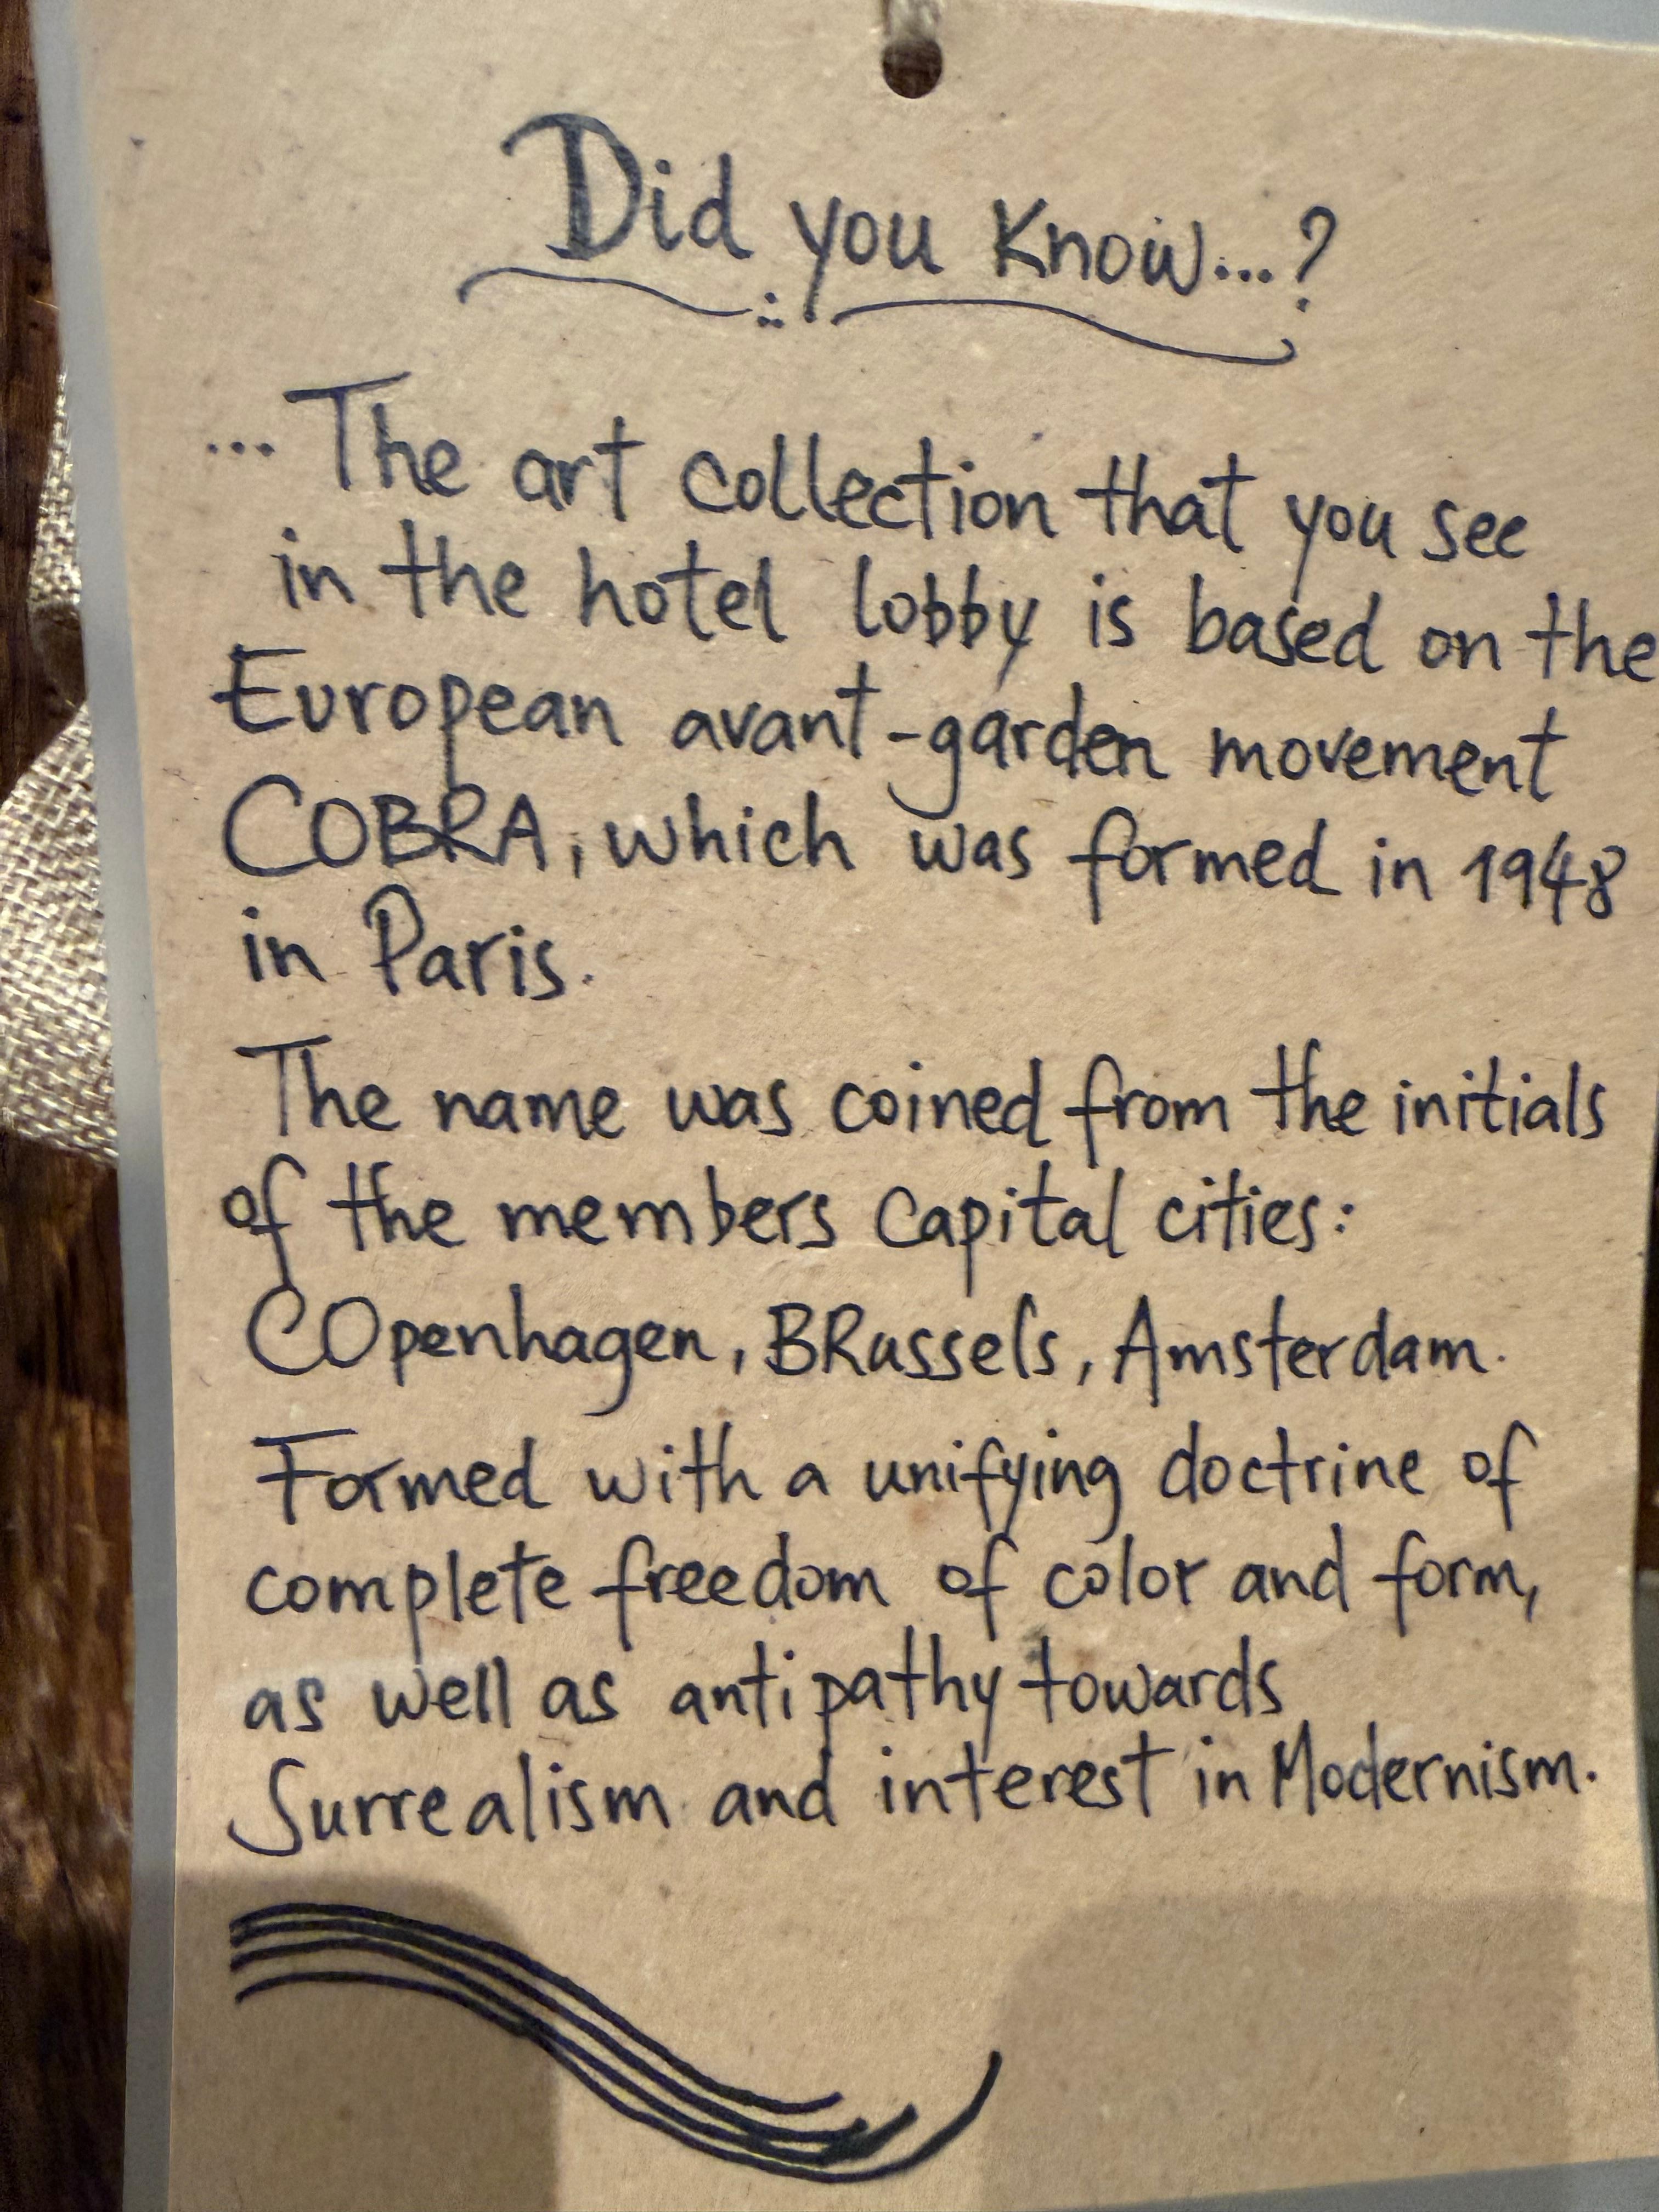 Did you Know...?
... The art collection that you see
in the hotel lobby is based on the
European avant-garden movement
COBRA, which was formed in 1948
in Paris.
The name was coined from the initials
of the members Capital cities:
COpenhagen, BRussels, Amsterdam.
Formed with a unifying doctrine of
complete freedom of color and form,
as well as antipathy towards
Surrealism and interest in Modernism.